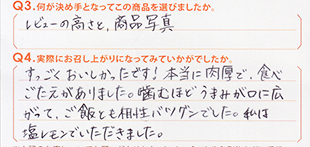 Q3.何が決め手となってこの商品を選びましたか。
レビューの高さと、商品写真
Q4.実際にお召し上がりになってみていかがでしたか。
すっごくおいしかったです！本当に肉厚で、食べ
ごたえがありました。噛むほどうまみが口に広
がって、ご飯とも相性バツグンでした。私は
塩レモンでいただきました。